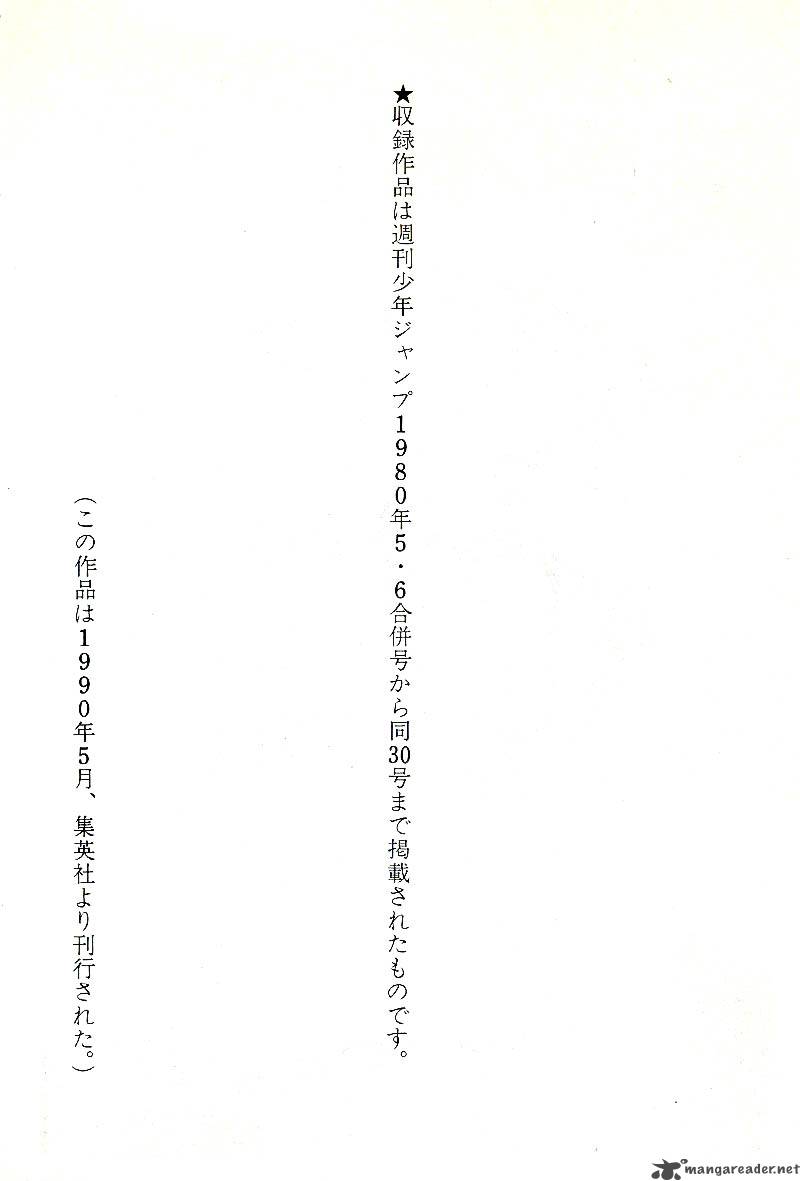 ★収録作品は週刊少年ジャンプ1980年5・6合併号から同30号まで掲載されたものです。
(この作品は1990年5月、集英社より刊行された。)
mangareader.net